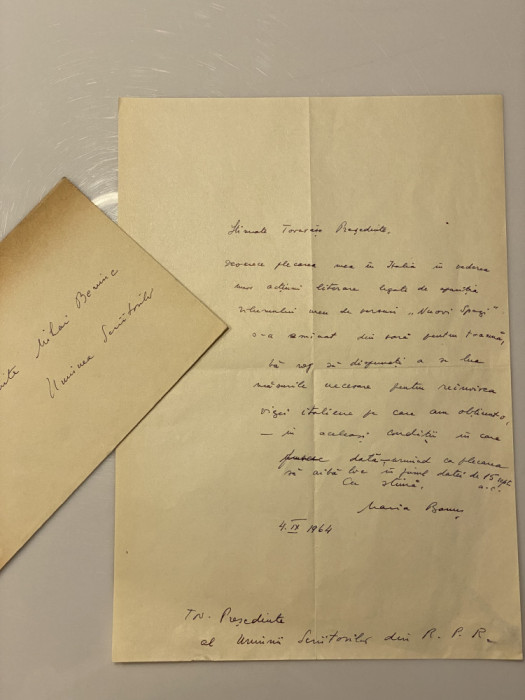 Stimate Tovarășe Președinte,
deoarece plecarea mea în Italia în vederea
unor acțiuni literare legate de apariția
volumului meu de versuri „Nuovi Spazi"
s-a amînat din vară pentru toamnă,
vă rog să dispuneți a se lua
măsurile necesare pentru reînnoirea
vizei italiene pe care am obținut-o,
– în aceleași condiții în care
data, urmînd ca plecarea
să aibă loc în jurul datei de 15 sept
a.c.
Cu stimă,
Maria Banuș
4.IX 1964
Tov. Președinte
al Uniunii Scriitorilor din R. P. R.
Mihai Beniuc
Uniunea Scriitorilor